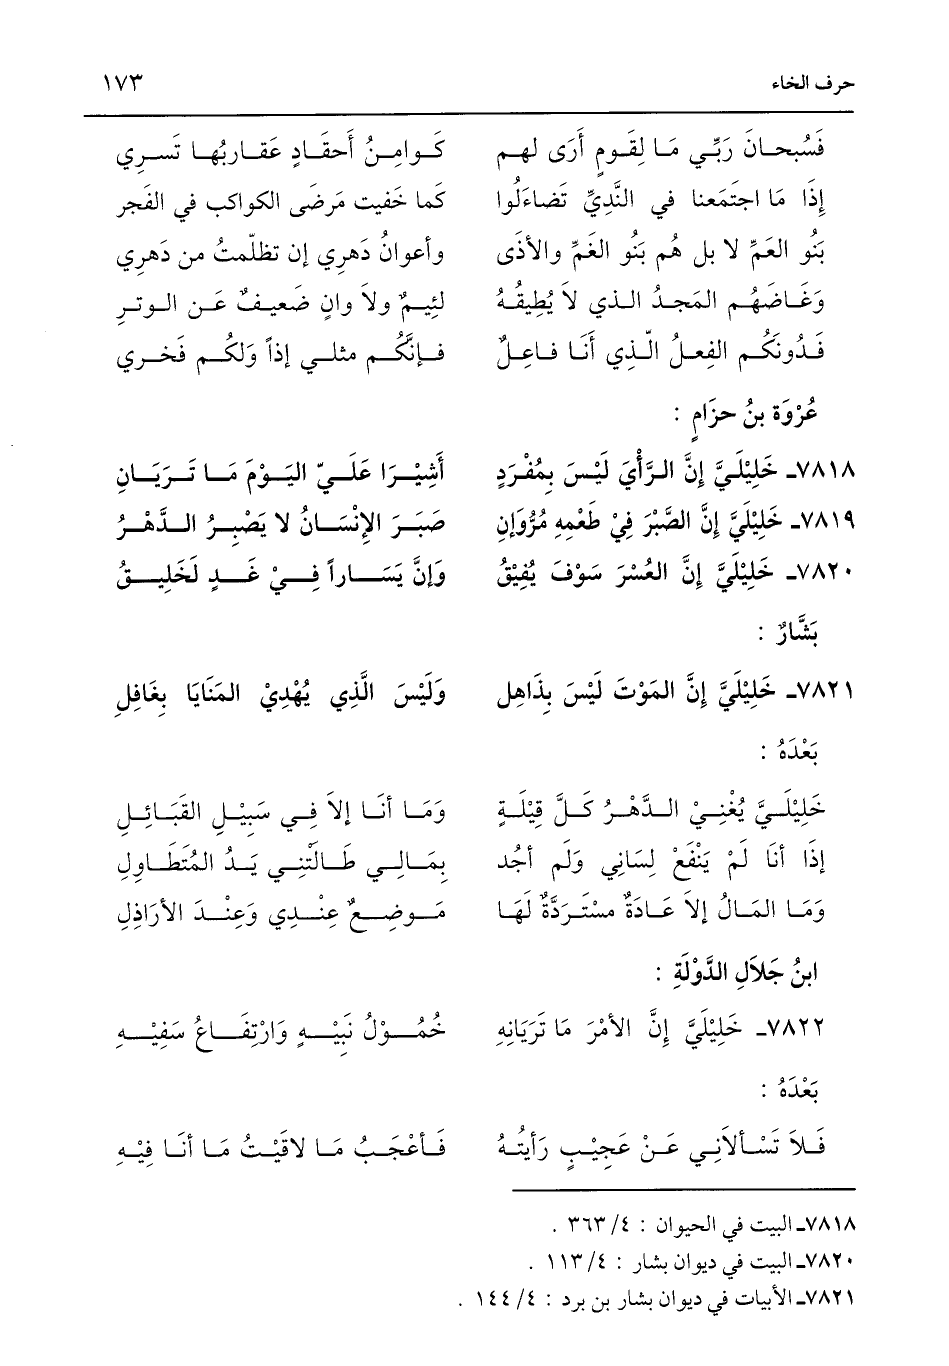 حرف الخاء ١٧٣
فَسُبحانَ رَبِّي مَا لِقَومٍ أَرَى لهم كَوامِنُ أَحقَادٍ عَقاربُها تَسري
إِذَا مَا اجتَمَعنا في النَّدِيِّ تَضاءَلُوا كَما خَفيت مَرضَى الكواكب في الفَجر
بَنُو العَمِّ لا بل هُم بَنُو الغَمِّ والأذَى وأعوانُ دَهري إن تظلّمتُ من دَهري
وَغَاضَهُم المَجدُ الذي لاَ يُطيقهُ لئِيمٌ ولاَ وانٍ ضَعيفٌ عَن الوتر
فَدُونَكُم الفِعلُ الّذي أَنَا فاعِلٌ فإنَّكُم مثلي إذاً وَلكُم فَخري
عُرْوَة بنُ حزَامٍ :
٧٨١٨ـ خَلِيْلَيَّ إِنَّ الرَّأْيَ لَيْسَ بِمُفْرَدٍ أَشِيْرَا عَلَيّ اليَوْمَ مَا تَرَيَانِ
٧٨١٩ـ خَلِيْلَيَّ إِنَّ الصَّبْرَ فِيْ طَعْمِهِ مُرٌّوَإن صَبَرَ الإِنْسَانُ لا يَصْبِرُ الدَّهْرُ
٧٨٢٠ـ خَلِيْلَيَّ إِنَّ العُسْرَ سَوْفَ يُفِيْقُ وَإِنَّ يَسَاراً فِيْ غَدٍ لَخَلِيقُ
بَشَّارٌ :
٧٨٢١ـ خَلِيْلَيَّ إِنَّ المَوْتَ لَيْسَ بِذَاهِلِ وَلَيْسَ الَّذِي يُهْدِيْ المَنَايَا بِغَافِلِ
بَعْدَهُ :
خَلِيْلَيَّ يُفْنِيْ الدَّهْرُ كَلَّ قِيْلَةٍ وَمَا أَنَا إلاَ فِي سَبِيْلِ القَبَائِلِ
إِذَا أنَا لَمْ يَنْفَعْ لِسَاني وَلَم أجُد بِمَالي طَالَتْنِي يَدُ المُتَطَاوِلِ
وَمَا المَالُ إلاَ عَادَةٌ مسْتَردَّةٌ لَهَا مَوضِعٌ عنْدِي وَعِنْدَ الأرَاذِلِ
ابنُ جَلاَلِ الدَّوْلَةِ :
٧٨٢٢ـ خَلِيْلَيَّ إِنَّ الأمْرَ مَا تَرَيَانِهِ خُمُوْلُ نَبِيْهٍ وَارْتِفَاعُ سَفِيْهِ
بَعْدَهُ :
فَلاَ تَسْألاَنِي عَنْ عَجِيْبٍ رَأيتُهُ فَأعْجَبُ مَا لاَقَيْتُ مَا أنَا فِيْهِ
٧٨١٨ـ البيت في الحيوان : ٤/ ٣٦٣ .
٧٨٢٠ـ البيت في ديوان بشار : ٤/ ١١٣ .
٧٨٢١ـ الأبيات في ديوان بشار بن برد : ٤/ ١٤٤ .